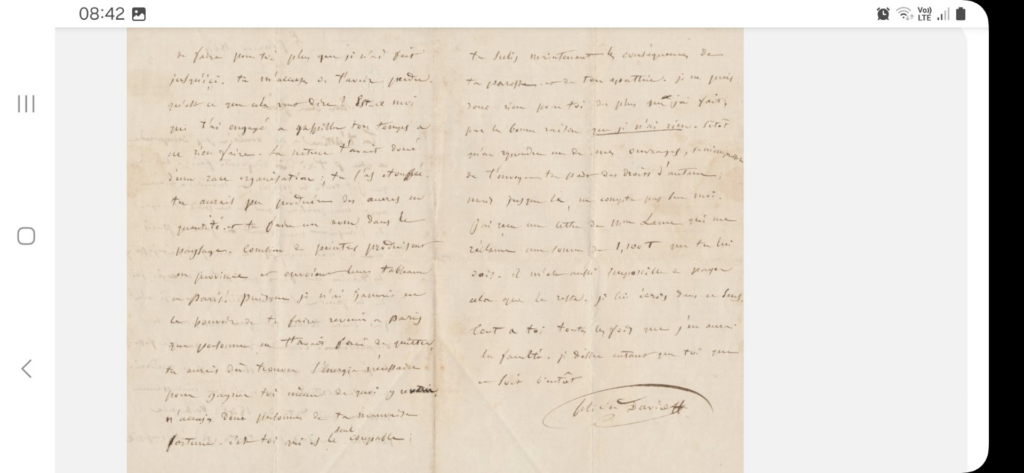 08:42
Vo)) LTE
de faire pour toi plus que je n'ai fait
jusqu'ici. tu m'accuses de t'avoir perdu.
qu'est ce que cela veut dire? Est-ce moi
qui t'ai engagé a gaspiller ton temps a
ne rien faire. La nature t'avait doué
d'une rare organisation; tu l'as étouffée.
tu aurais pu produire des œuvres en
quantité et te faire un nom dans le
paysage. Combien de peintres produisent
en province et envoient leurs tableaux
a Paris! Puisque je n'ai jamais eu
le pouvoir de te faire revenir a Paris
que personne ne t'avait forcé de quitter,
tu aurais dû trouver l'énergie nécessaire
pour gagner toi même de quoi y
n'accuse donc personne de ta mauvaise
fortune. c'est toi qui es le seul coupable;
tu subis maintenant les conséquences de
ta paresse et de ton apathie. je ne puis
donc rien pour toi de plus que j'ai fait,
par la bonne raison que je n'ai rien.
un de mes ouvrages,
de l'envoyer des droits d'auteur;
mais jusque là, ne compte pas sur moi.
j'ai reçu une lettre de Mme qui me
réclame une somme de 1,100 f que tu lui
dois. il m'est aussi impossible de payer
cela que le reste. je lui écris dans ce sens.
Tout a toi toutes les fois que j'en aurai
la faculté. je désire autant que toi que
ce soit bientôt
Félicien David